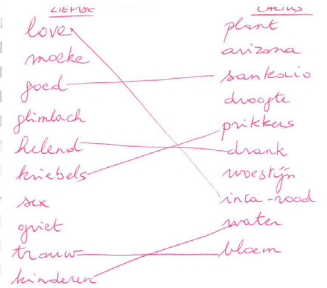 LIEFDE
lover
moeke
goed
glimlach
helend
kriebels
sex
griet
trouw
kinderen
CACTUS
plant
arizona
droogte
prikkers
drank
woestijn
inca-rood
water
bloem